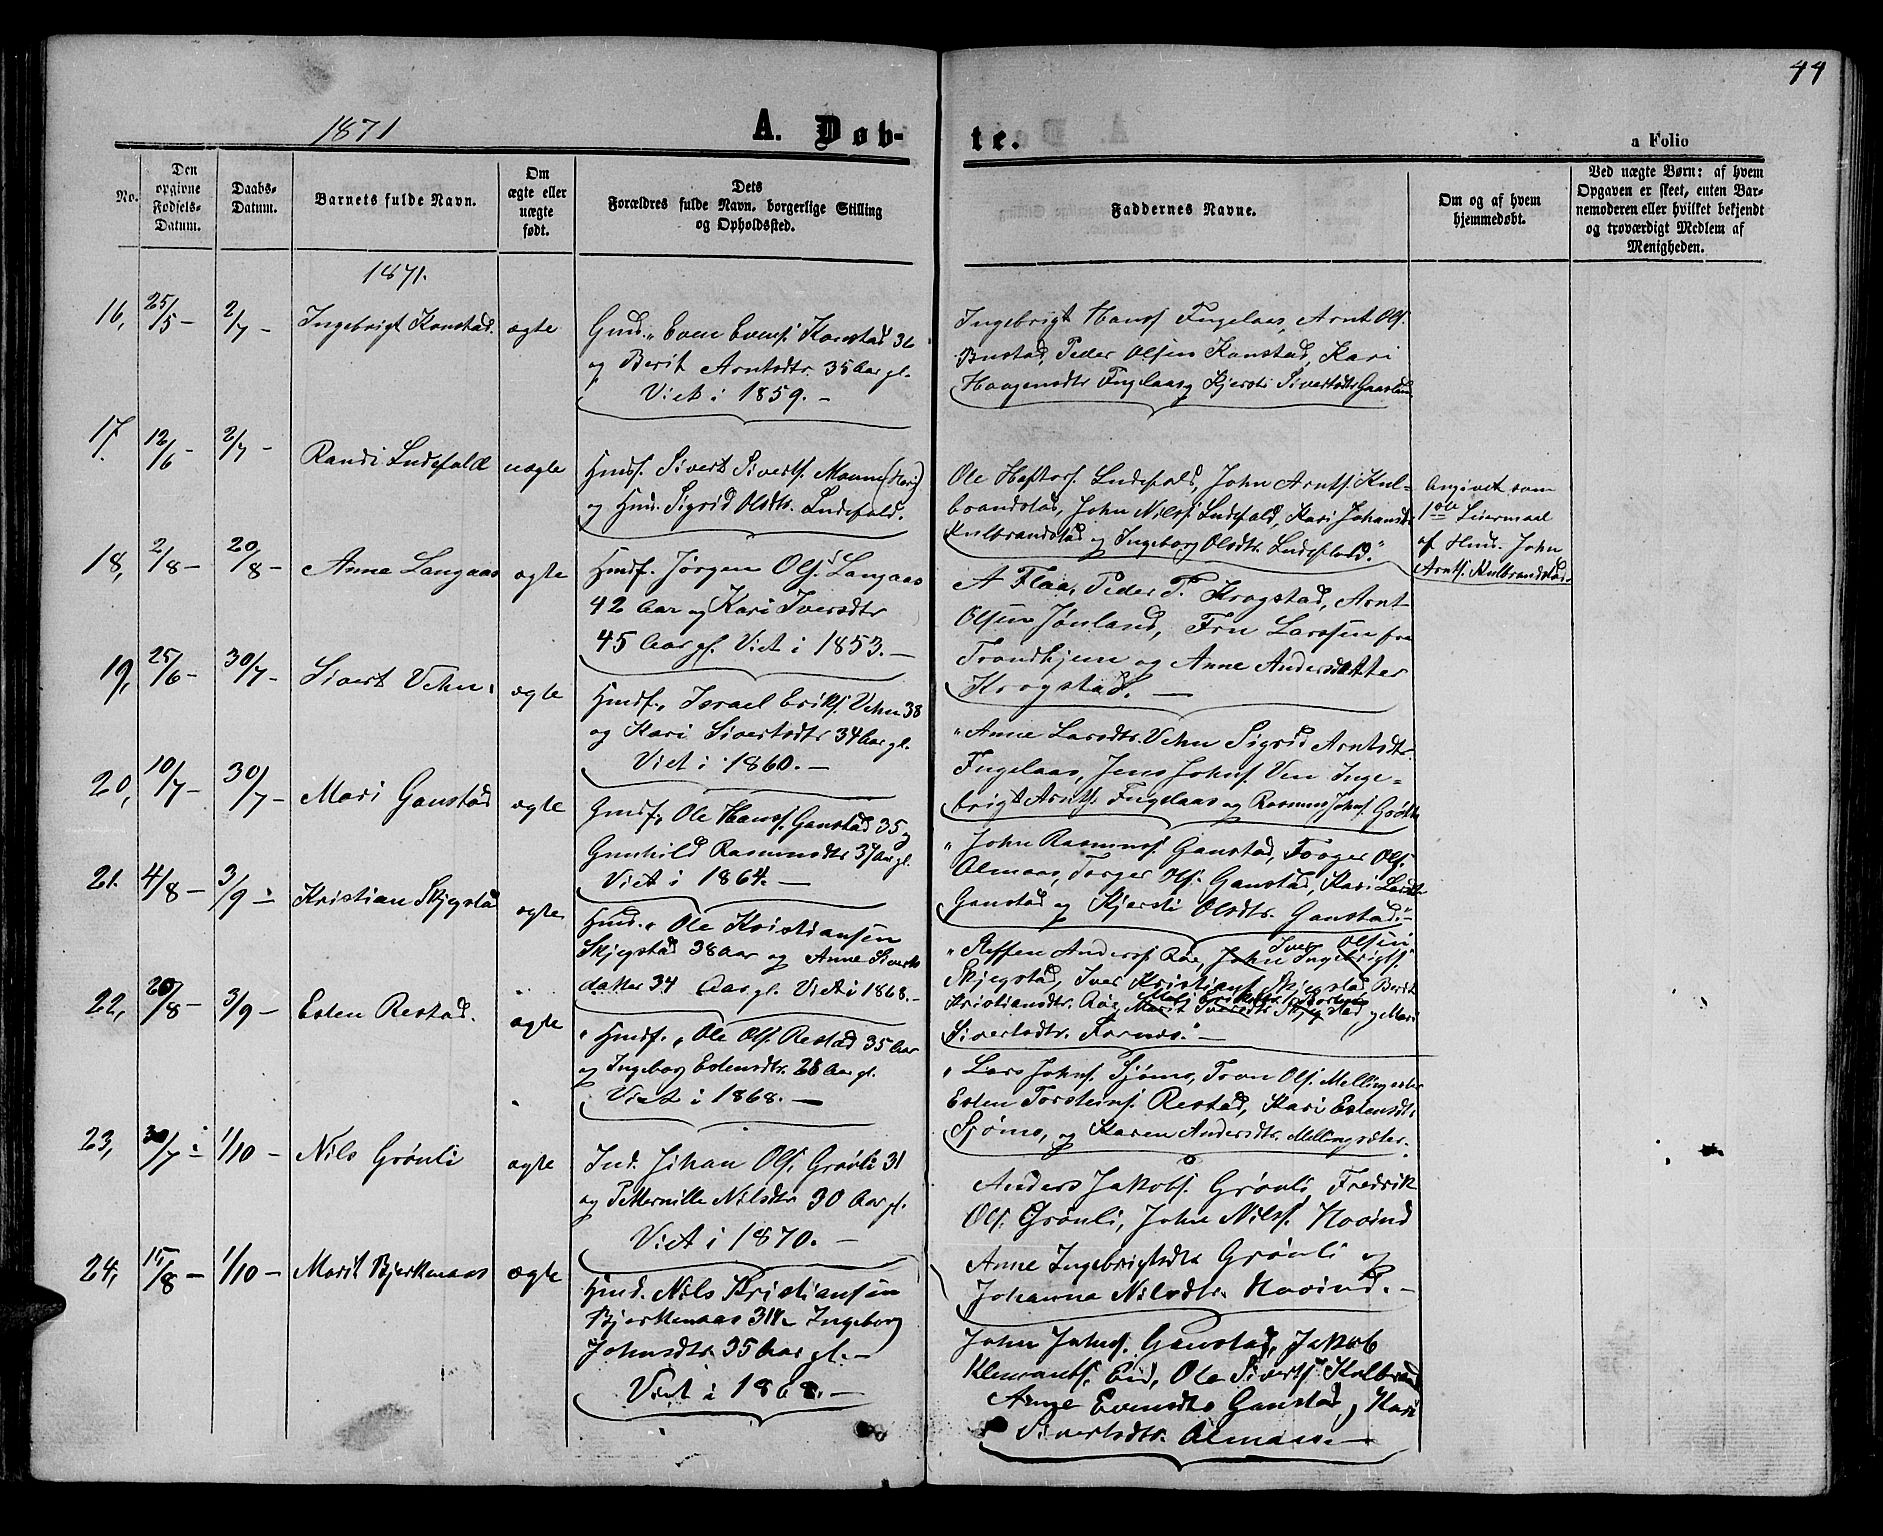 44
1871
A. Døb-
te.
a Folio
No.
Den opgivne Fødsels-Datum.
Daabs-Datum.
Barnets fulde Navn.
Om ægte eller uægte født.
Dets Forældres fulde Navn, borgerlige Stilling og Opholdssted.
Faddernes Navne.
Om og af hvem hjemmedøbt.
Ved uægte Børn: af hvem Opgaven er skeet, enten Barnemoderen eller hvilket bekjendt og troværdigt Medlem af Menigheden.
1871.
16, 25/5 - 2/7 - Ingebrigt Konstad. ægte
Gmd. Even Evens. Konstad 36
og Berit Arntsdtr. 35 Aar gl.
Viet i 1859. -
Ingebrigt Hans. Fuglaas, Arnt Ols.
Bustad, Peder Olsen Konstad, Kari
Haagensdtr Fuglaas og Kjersti Sivertsdtr
17. 12/6 - 2/7 - Randi Ludefald uægte
Hmdf. Sivert Siverts. Moum
og Hmd. Sigrid Olsdtr. Ludefald.
Ole Ludefald, John Arnts. Kul-
brandstad, John Nils. Ludefald, Kari Johansd.
Kulbrandstad og Ingeborg Olsdtr. Ludefald."
Angivet som
1ste Leiermaal
af Hmd. John
Arnts. Kulbrandstad.
18, 2/8 - 20/8 - Anne Langaas ægte
Hmdf. Jørgen Ols. Langaas
42 Aar og Kari Iversdtr
45 Aar gl. Viet i 1853. -
A Flaa, Peder P. Krogstad, Arnt
Olsen Jønland, Fru Larssen fra
Trondhjem og Anne Andersdatter
Krogstad. -
19, 25/6 - 30/7 - Sivert Vehn ægte
Hmdf. Israel Eriks. Vehn 38
og Kari Sivertsdtr 34 Aar gl.
Viet i 1860. -
"Anne Larsdtr. Vehn Sigrid Arntsdtr.
Fuglaas, Jens Johns. Ven Inge-
brigt Arnts. Fuglaas og Rasmus Johns.
20, 10/7 - 30/7 - Mari Ganstad ægte
Gmdf. Ole Hans. Ganstad 35 og
Gunhild Rasmusdtr 37 Aar gl.
Viet i 1864. -
"John Rasmus. Ganstad, Torger Ols.
Almaas, Torger Ols. Ganstad, Kari Larsdtr
Ganstad og Kjersti Olsdtr. Ganstad."
21. 4/8 - 3/9 - Kristian Skjegstad ægte
Hmd. Ole Kristiansen
Skjegstad 38 Aar og Anne Siverts
datter 34 Aar gl. Viet i 1868. -
"Steffen Anders. Røe, John Ingebrigts. Iver Olsen
Skjegstad, Iver Kristians. Skjegstad Berit
Kristiansdtr. Røe Marit Iversdtr. Skjegstad og Mari
Sivertsdtr. Fornes." -
22, 20/8 - 3/9 - Esten Restad. ægte
"Hmdf. Ole Ols. Restad 35 Aar
og Ingeborg Estensdtr. 28 Aar gl.
Viet i 1868. -
"Lars Johns. Sjømo, Tron Ols. Mellingsæter
Esten Torsteins. Restad, Kari Estensdtr.
Sjømo, og Karen Andersdtr. Mellingsæter.
23, 30/7 - 1/10 - Nils Grønli ægte
Ind. Johan Ols. Grønli 31
og Petternille Nilsdtr 30 Aar gl.
Viet i 1870. -
Anders Jakobs. Grønli, Fredrik
Ols. Grønli, John Nils. Hovind
Anne Ingebrigtsdtr Grønli og
Johanna Nilsdtr. Hovind. -
24, 15/8 - 1/10 - Marit Bjerkenaas ægte
Hmd. Nils Kristiansen
Bjerkenaas 31 Ingeborg
Johnsdtr. 35 Aar gl. -
Viet i 1868. -
John Johns. Ganstad, Jakob
Klemants. Eid, Ole Siverts. Kulbrand
Anne Evensdtr Ganstad og Kari
Sivertsdtr. Almaas -